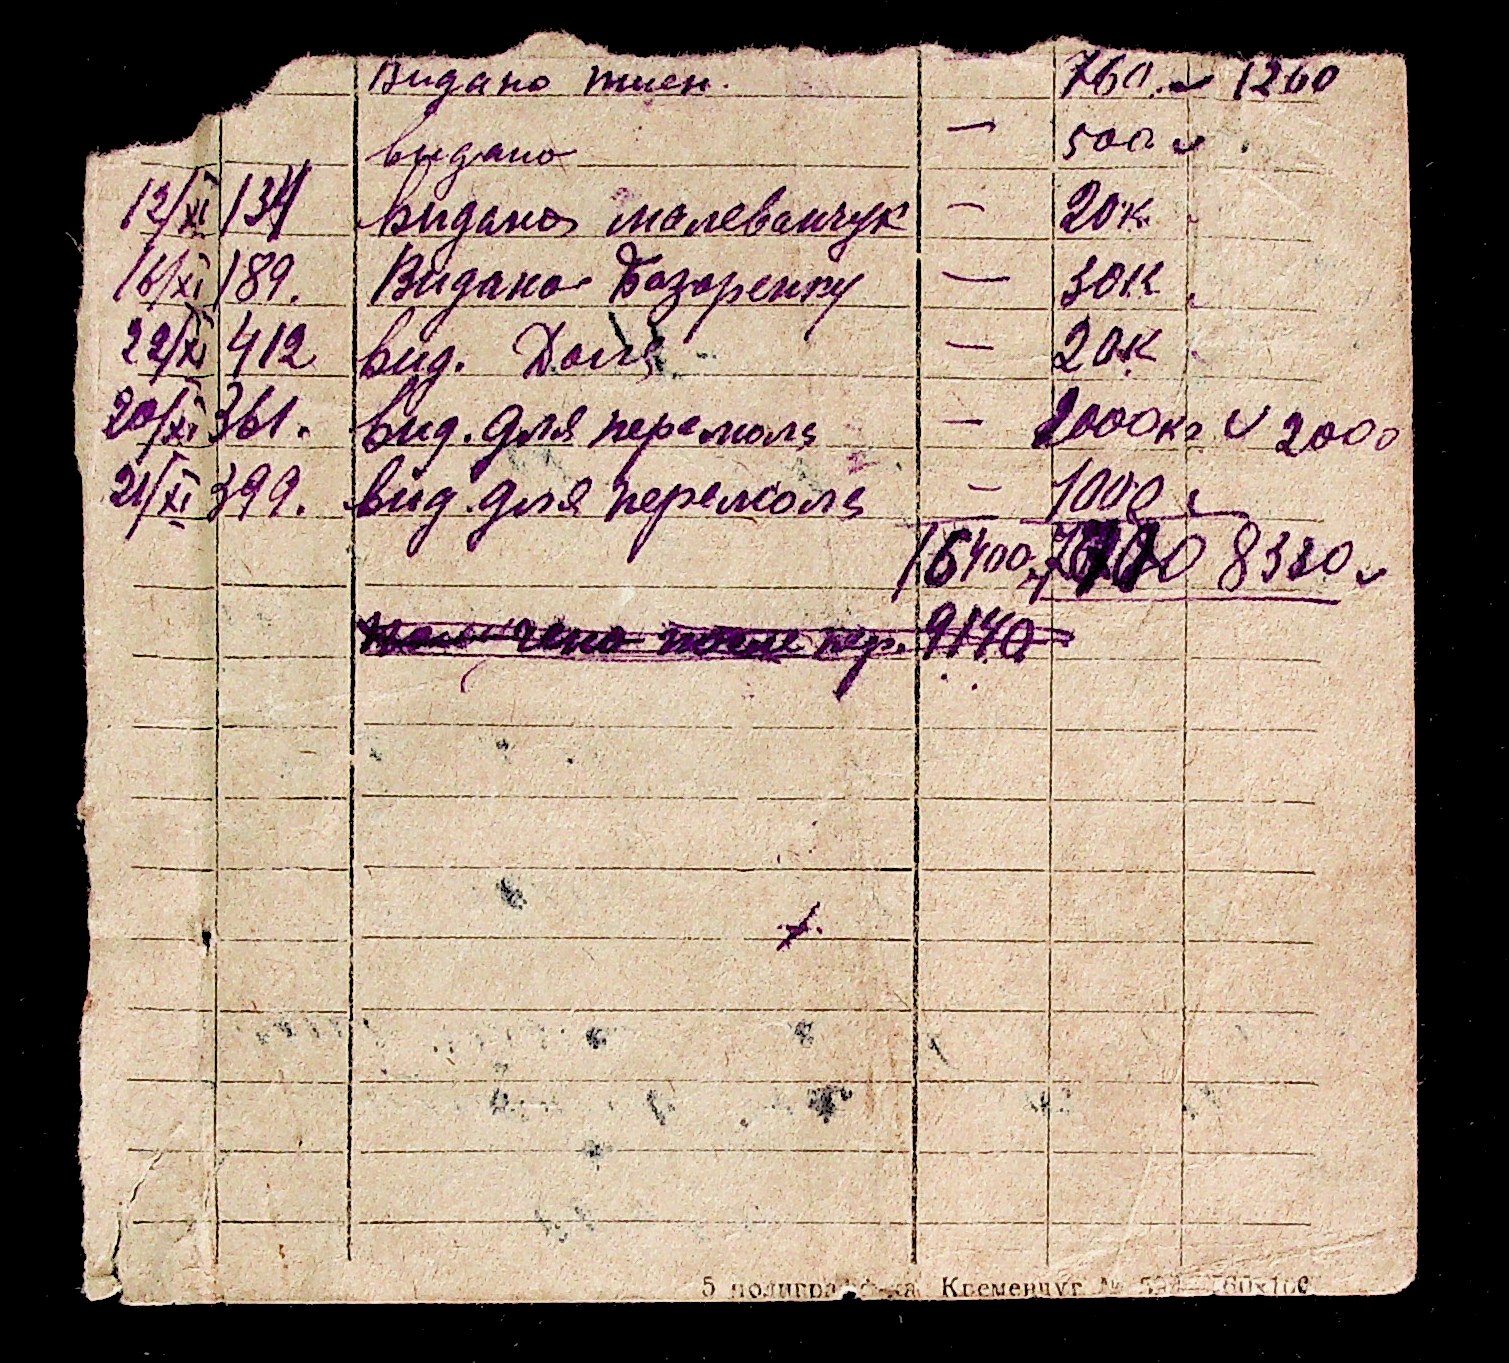 Видано пшен. 760 1260
видано — 500
12/XI 134 Видано малеванчук — 20к
16/XI 189. Видано Базаренку — 30к
22/XI 412 вид. — 20к
20/XI 361. вид. для перемола — 2000кг 2000
21/XI 399. вид. для перемола — 1000
16400 8330
пер. 9140
5 полиграф Кременчуг №